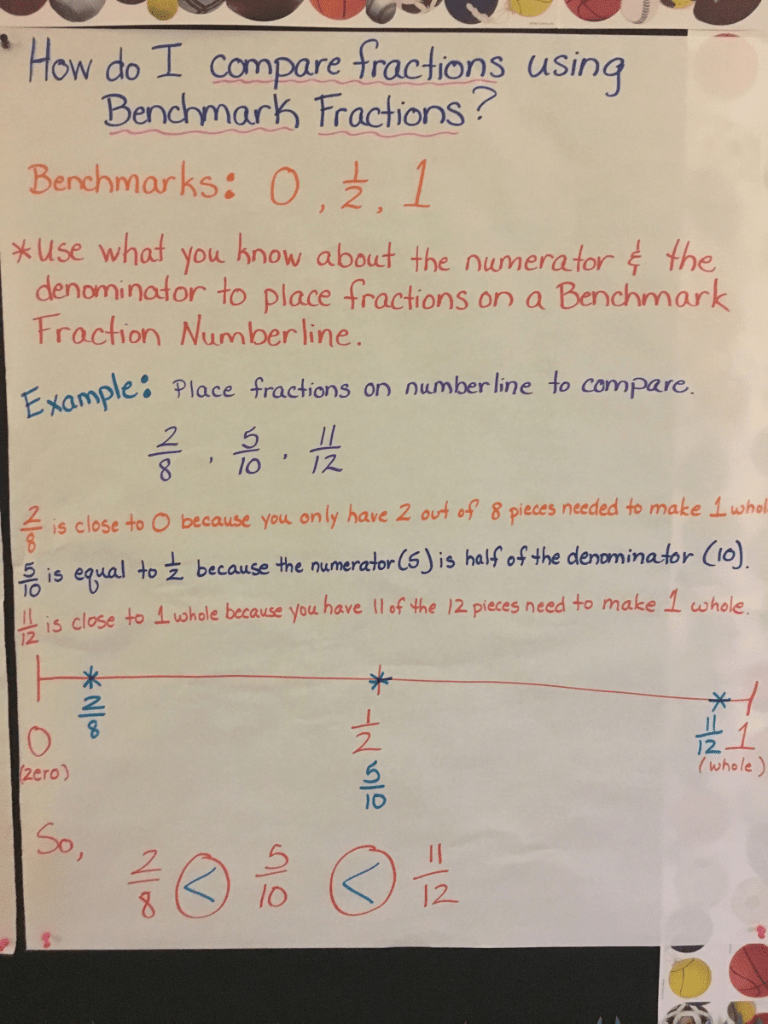 How do I compare fractions using
Benchmark Fractions?
Benchmarks: 0, 1/2, 1
*Use what you know about the numerator & the
denominator to place fractions on a Benchmark
Fraction Numberline.
Example: Place fractions on numberline to compare.
2/8, 5/10, 11/12
2/8 is close to 0 because you only have 2 out of 8 pieces needed to make 1 whol
5/10 is equal to 1/2 because the numerator (5) is half of the denominator (10).
11/12 is close to 1 whole because you have 11 of the 12 pieces need to make 1 whole.
0 2/8 1/2 11/12 1
(zero) 5/10 (whole)
So,
2/8 < 5/10 < 11/12